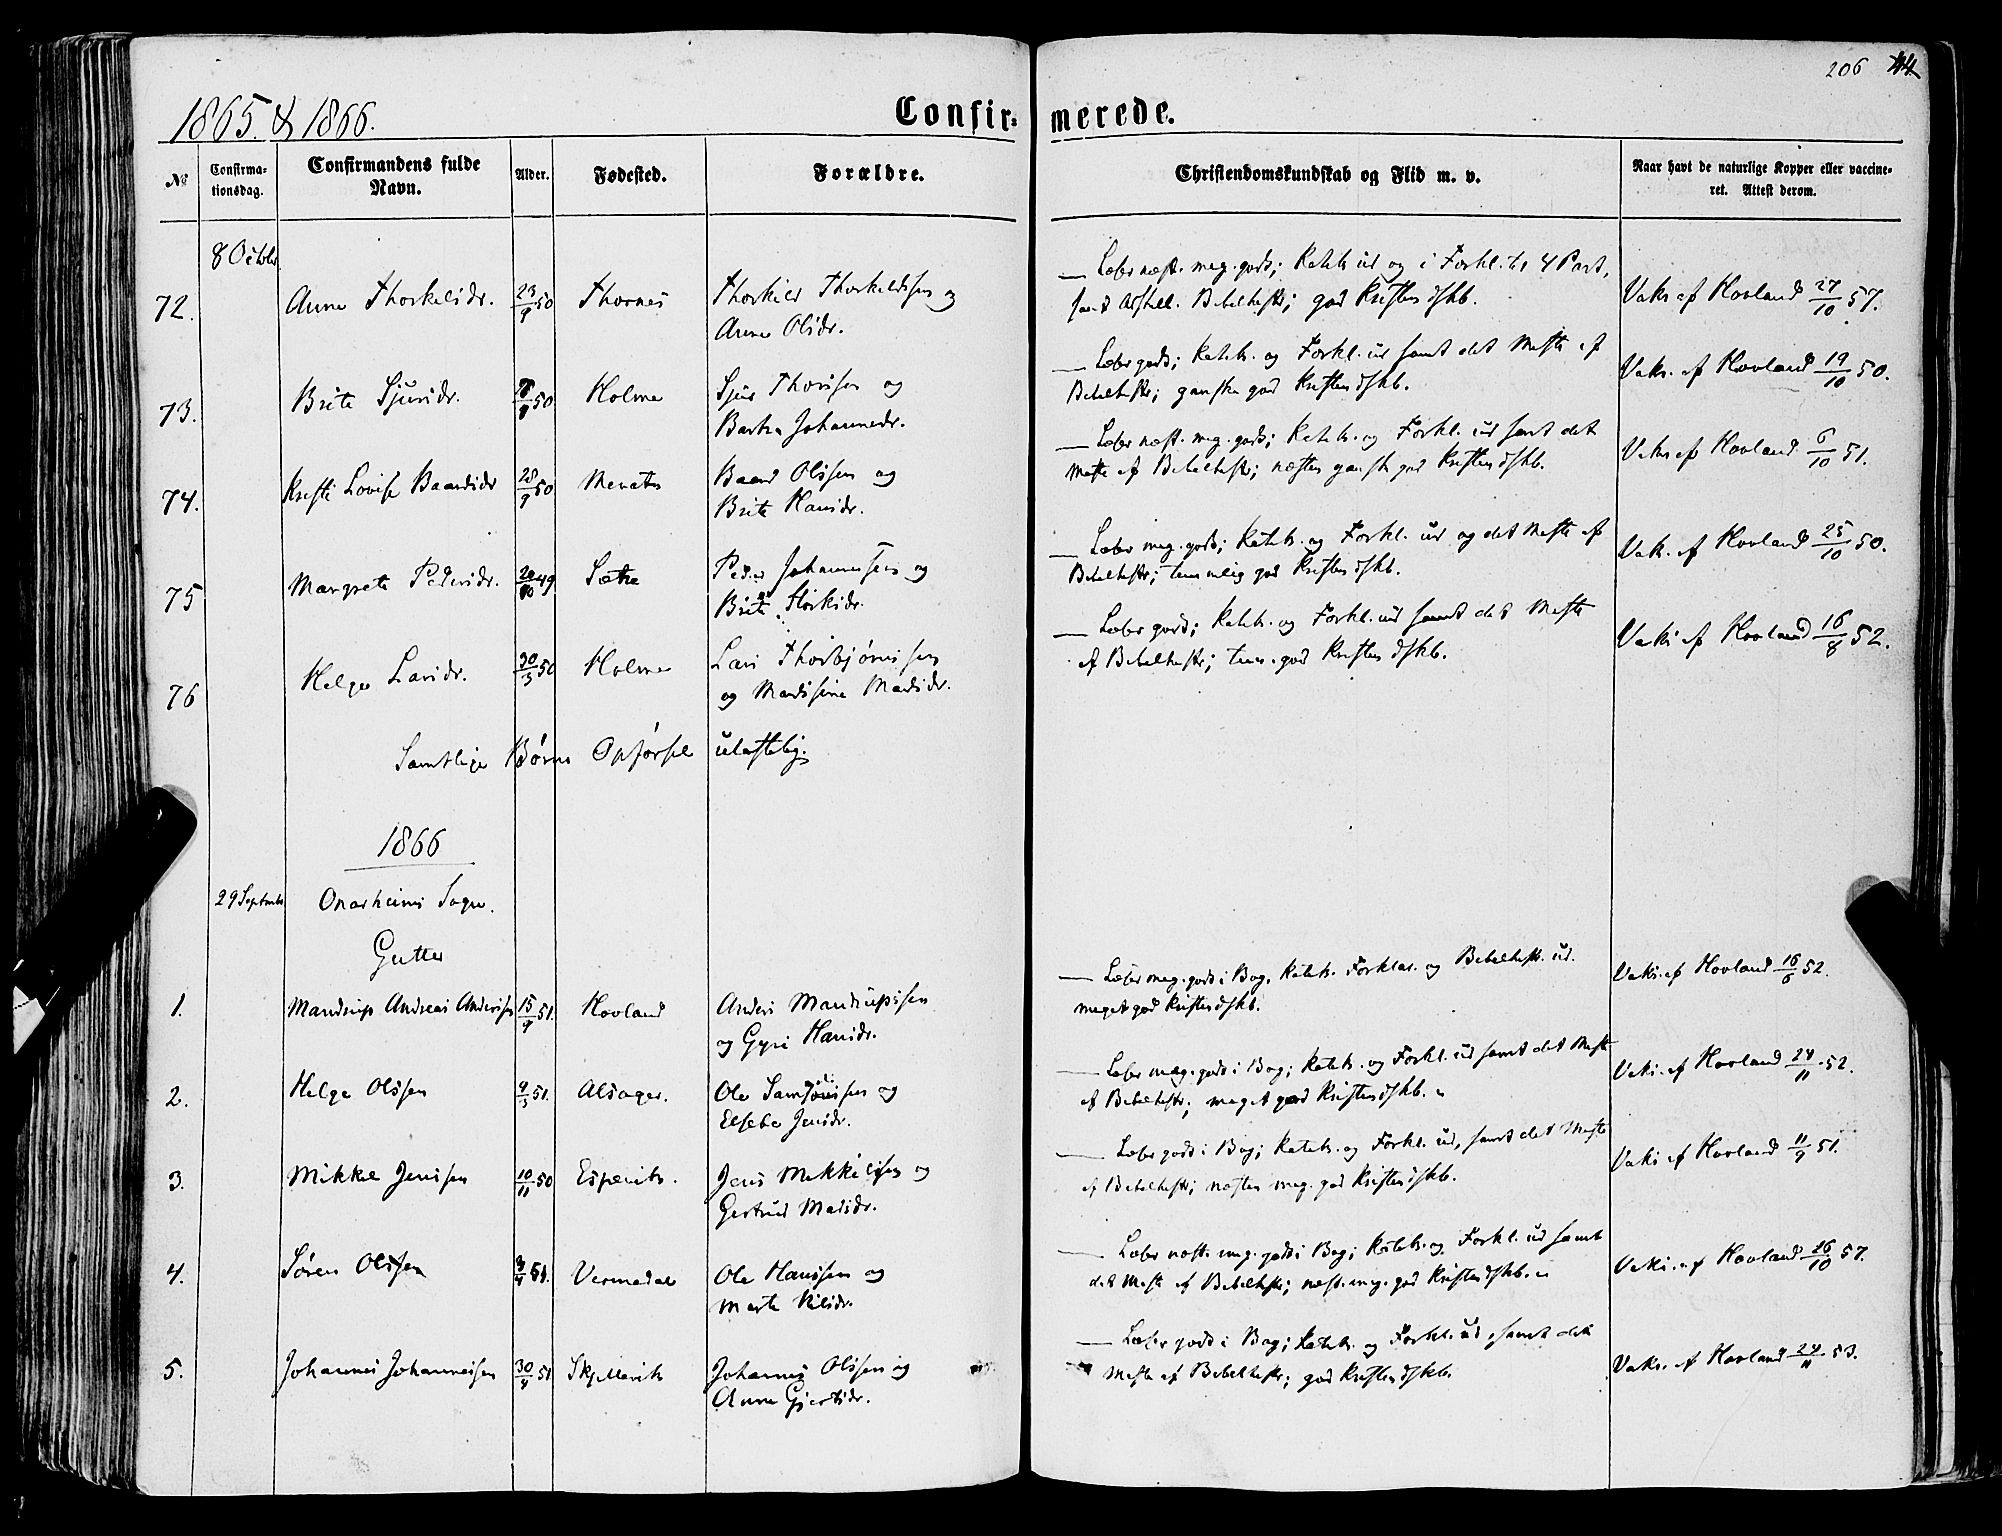 206 44
1865. & 1866.
Confir-merede.
No
Confirmationsdag.
Confirmandens fulde Navn.
Alder.
Fødested.
Forældre.
Christendomskundskab og Flid m. v.
Naar havt de naturlige Kopper eller vaccineret. Attest derom.
8 Octobr
72. Anna Thorkelsdr. 23/9 50 Thornes Thorkild Thorkeldssen og
Anna Olsdr.
— Læser næst. meg. godt; Katek. ud og i Forkl. til 4 Part,
samt Bibelhistr; god Kristendskb.
Vaks. af Hovland 27/10 57.
73. Brite Sjursdr. 50 Holme Sjur Thorissen og
Barbra Johannesdr.
— Læser godt; Katek. og Forkl. ud samt det Meste af
Bibelhistr; ganske god Kristendskb.
Vaks. af Hovland 19/10 50.
74. Kristi Lovise Baardsdr 28/9 50 Baard Olssen og
Brite Hansdr.
— Læser næst. meg. godt; Katek. og Forkl. ud samt det
Meste af Bibelhistr; næsten ganske god Kristendskb.
Vaks af Hovland 6/10 51.
75 Margrete Pedersdr. 20/10 49 Sætre Peder Johannessen og
Brite
— Læser meg. godt; Katek. og Forkl. ud og det Meste af
Bibelhistr; temmelig god Kristendskb.
Vak. af Hovland 25/10 50.
76 Helga Larsdr. 30/3 50 Holme Lars Thorbjørnssen
og Mardssine Mardsdr.
— Læser godt; Katek. og Forkl. ud samt det Meste
af Bibelhistr; tem. god Kristendskb.
Vaks af Hovland 16/8 52.
Samtlige Børns Opførsel ulastelig.
1866
29 Septembr Onarheims Sogn.
Gutter
1. Mandrup Andreas Anderssen 15/9 51. Hovland Anders Mandrupssen
og Gyri Hansdr.
— Læser meg. godt i Bog, Katek. Forklar. og Bibelhistr. ud.
meget god Kristendskb.
Vaks. af Hovland 16/6 52.
2. Helge Olssen 9/3 51. Alsager. Ole Samsonssen og
Elsebe Jensdr.
— Læser meg. godt i Bog; Katek. og Forkl. ud samt det Meste
af Bibelhistr; meget god Kristendskb.
Vaks. af Hovland 24/11 52.
3. Mikkel Jenssen 10/11 50 Espevik. Jens Mikkelssen og
Gertrud Madsdr.
— Læser godt i Bog; Katek. og Forkl. ud, samt det Meste
af Bibelhistr; næsten meg. god Kristendskb.
Vaks af Hovland 11/9 51.
4. Søren Olssen 51. Vermedal Ole Hanssen og
Marte Nilsdr.
— Læser næst. meg. godt i Bog; Katek. og Forkl. ud samt
det Meste af Bibelhistr; næst. meg. god Kristendskb.
Vaks. af Hovland 26/10 57.
5. Johannes Johannessen 30/4 51 Skjelbreik Johannes Olssen og
Anna Gjertsdr.
— Læser godt i Bog; Katek. og Forkl. ud, samt det
Meste af Bibelhistr; god Kristendskb.
Vaks. af Hovland 24/11 53.